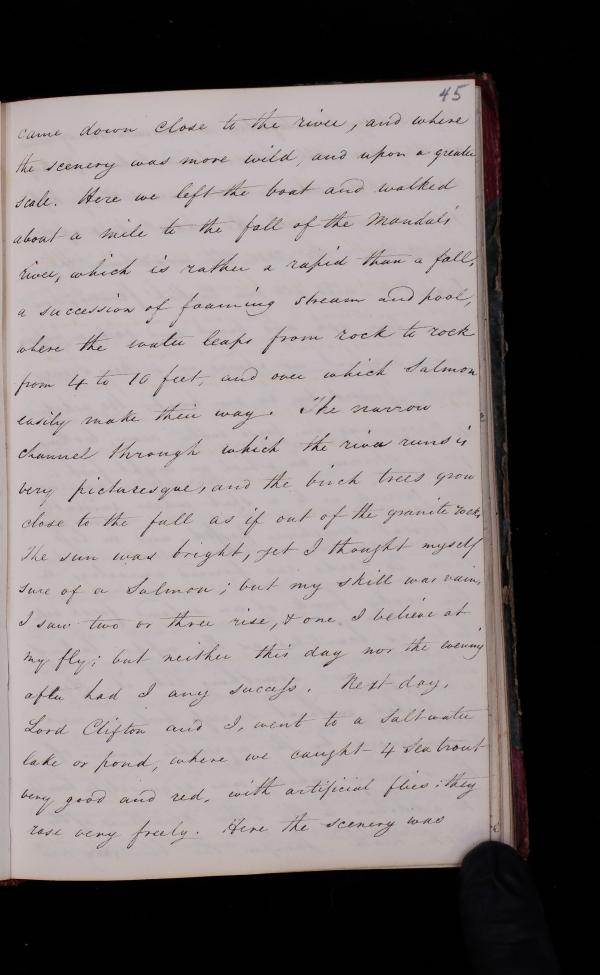 45
came down close to the river, and where
the scenery was more wild, and upon a greater
scale. Here we left the boat and walked
about a mile to the fall of the Mandals
river, which is rather a rapid than a fall,
a succession of foaming stream and pool,
where the water leaps from rock to rock
from 4 to 10 feet, and over which Salmon
easily make their way. The narrow
channel through which the river runs is
very picturesque, and the birch trees grow
close to the fall as if out of the granite rocks.
The sun was bright, yet I thought myself
sure of a Salmon; but my skill was vain,
I saw two or three rise, & one I believe at
my fly; but neither this day nor the evening
after had I any success. Next day,
Lord Clifton and I, went to a Salt water
lake or pond, where we caught 4 Sea trout
very good and red, with artificial flies: they
rose very freely. Here the scenery was